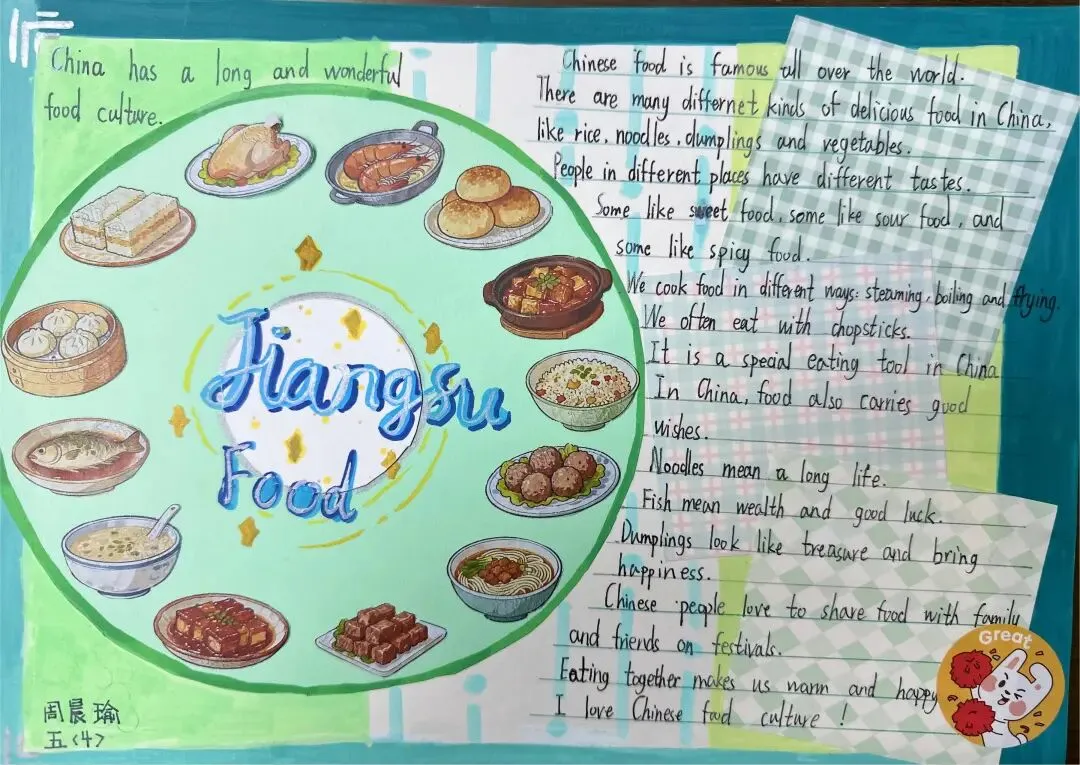 China has a long and wonderful
food culture.
Jiangsu
Food
周晨瑜
五<4>
Chinese food is famous all over the world.
There are many differnet kinds of delicious food in China,
like rice, noodles, dumplings and vegetables.
People in different places have different tastes.
Some like sweet food, some like sour food, and
some like spicy food.
We cook food in different ways: steaming, boiling and frying.
We often eat with chopsticks.
It is a special eating tool in China
In China, food also carries good
wishes.
Noodles mean a long life.
Fish mean wealth and good luck.
Dumplings look like treasure and bring
happiness.
Chinese people love to share food with family
and friends on festivals.
Eating together makes us warm and happy
I love Chinese food culture !
Great